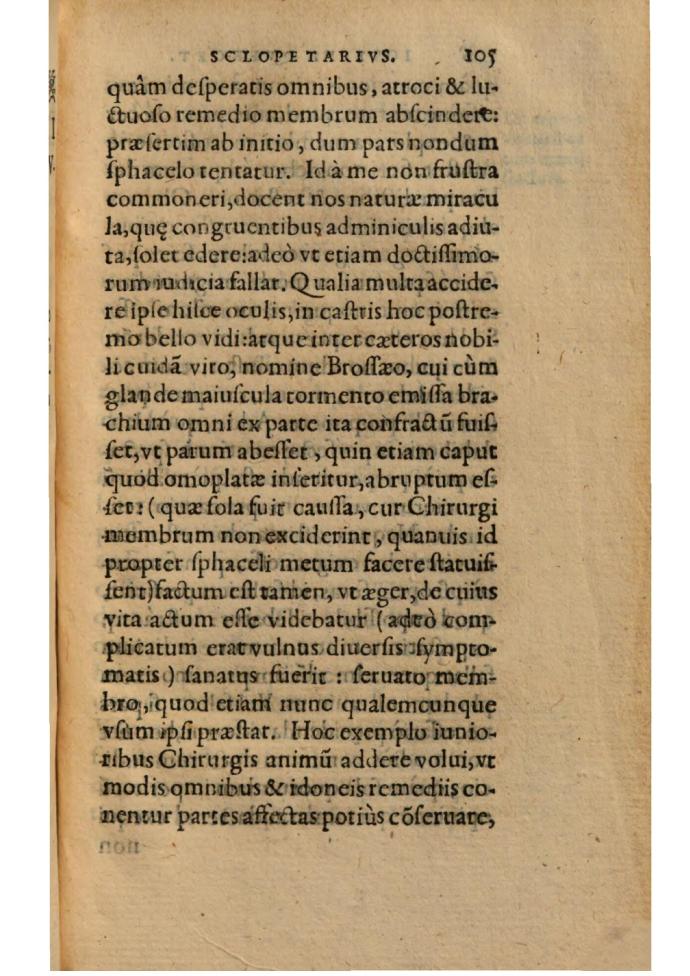 SCLOPETARIVS. 105
quâm desperatis omnibus, atroci & lu-
ctuoso remedio membrum abscindere:
præsertim ab initio, dum pars nondum
sphacelo tentatur. Id à me non frustra
commoneri, docent nos naturæ miracu
la, quę congruentibus adminiculis adiu-
ta, solet edere: adeò vt etiam doctissimo-
rum iudicia fallat. Qualia multa accide-
re ipse hisce oculis, in castris hoc postre-
mo bello vidi: atque inter cæteros nobi-
li cuidā viro, nomine Brossæo, cui cùm
glande maiuscula tormento emissa bra-
chium omni ex parte ita confractū fuis-
set, vt parum abesset, quin etiam caput
quod omoplatæ inseritur, abruptum es-
set: (quæ sola fuit caussa, cur Chirurgi
membrum non exciderint, quanuis id
propter sphaceli metum facere statuis-
sent) factum est tamen, vt æger, de cuius
vita actum esse videbatur (adeò com-
plicatum erat vulnus diuersis sympto-
matis) sanatus fuerit: seruato mem-
bro, quod etiam nunc qualemcunque
vsum ipsi præstat. Hoc exemplo iunio-
ribus Chirurgis animū addere volui, vt
modis omnibus & idoneis remediis co-
nentur partes affectas potiùs cōseruare,
non